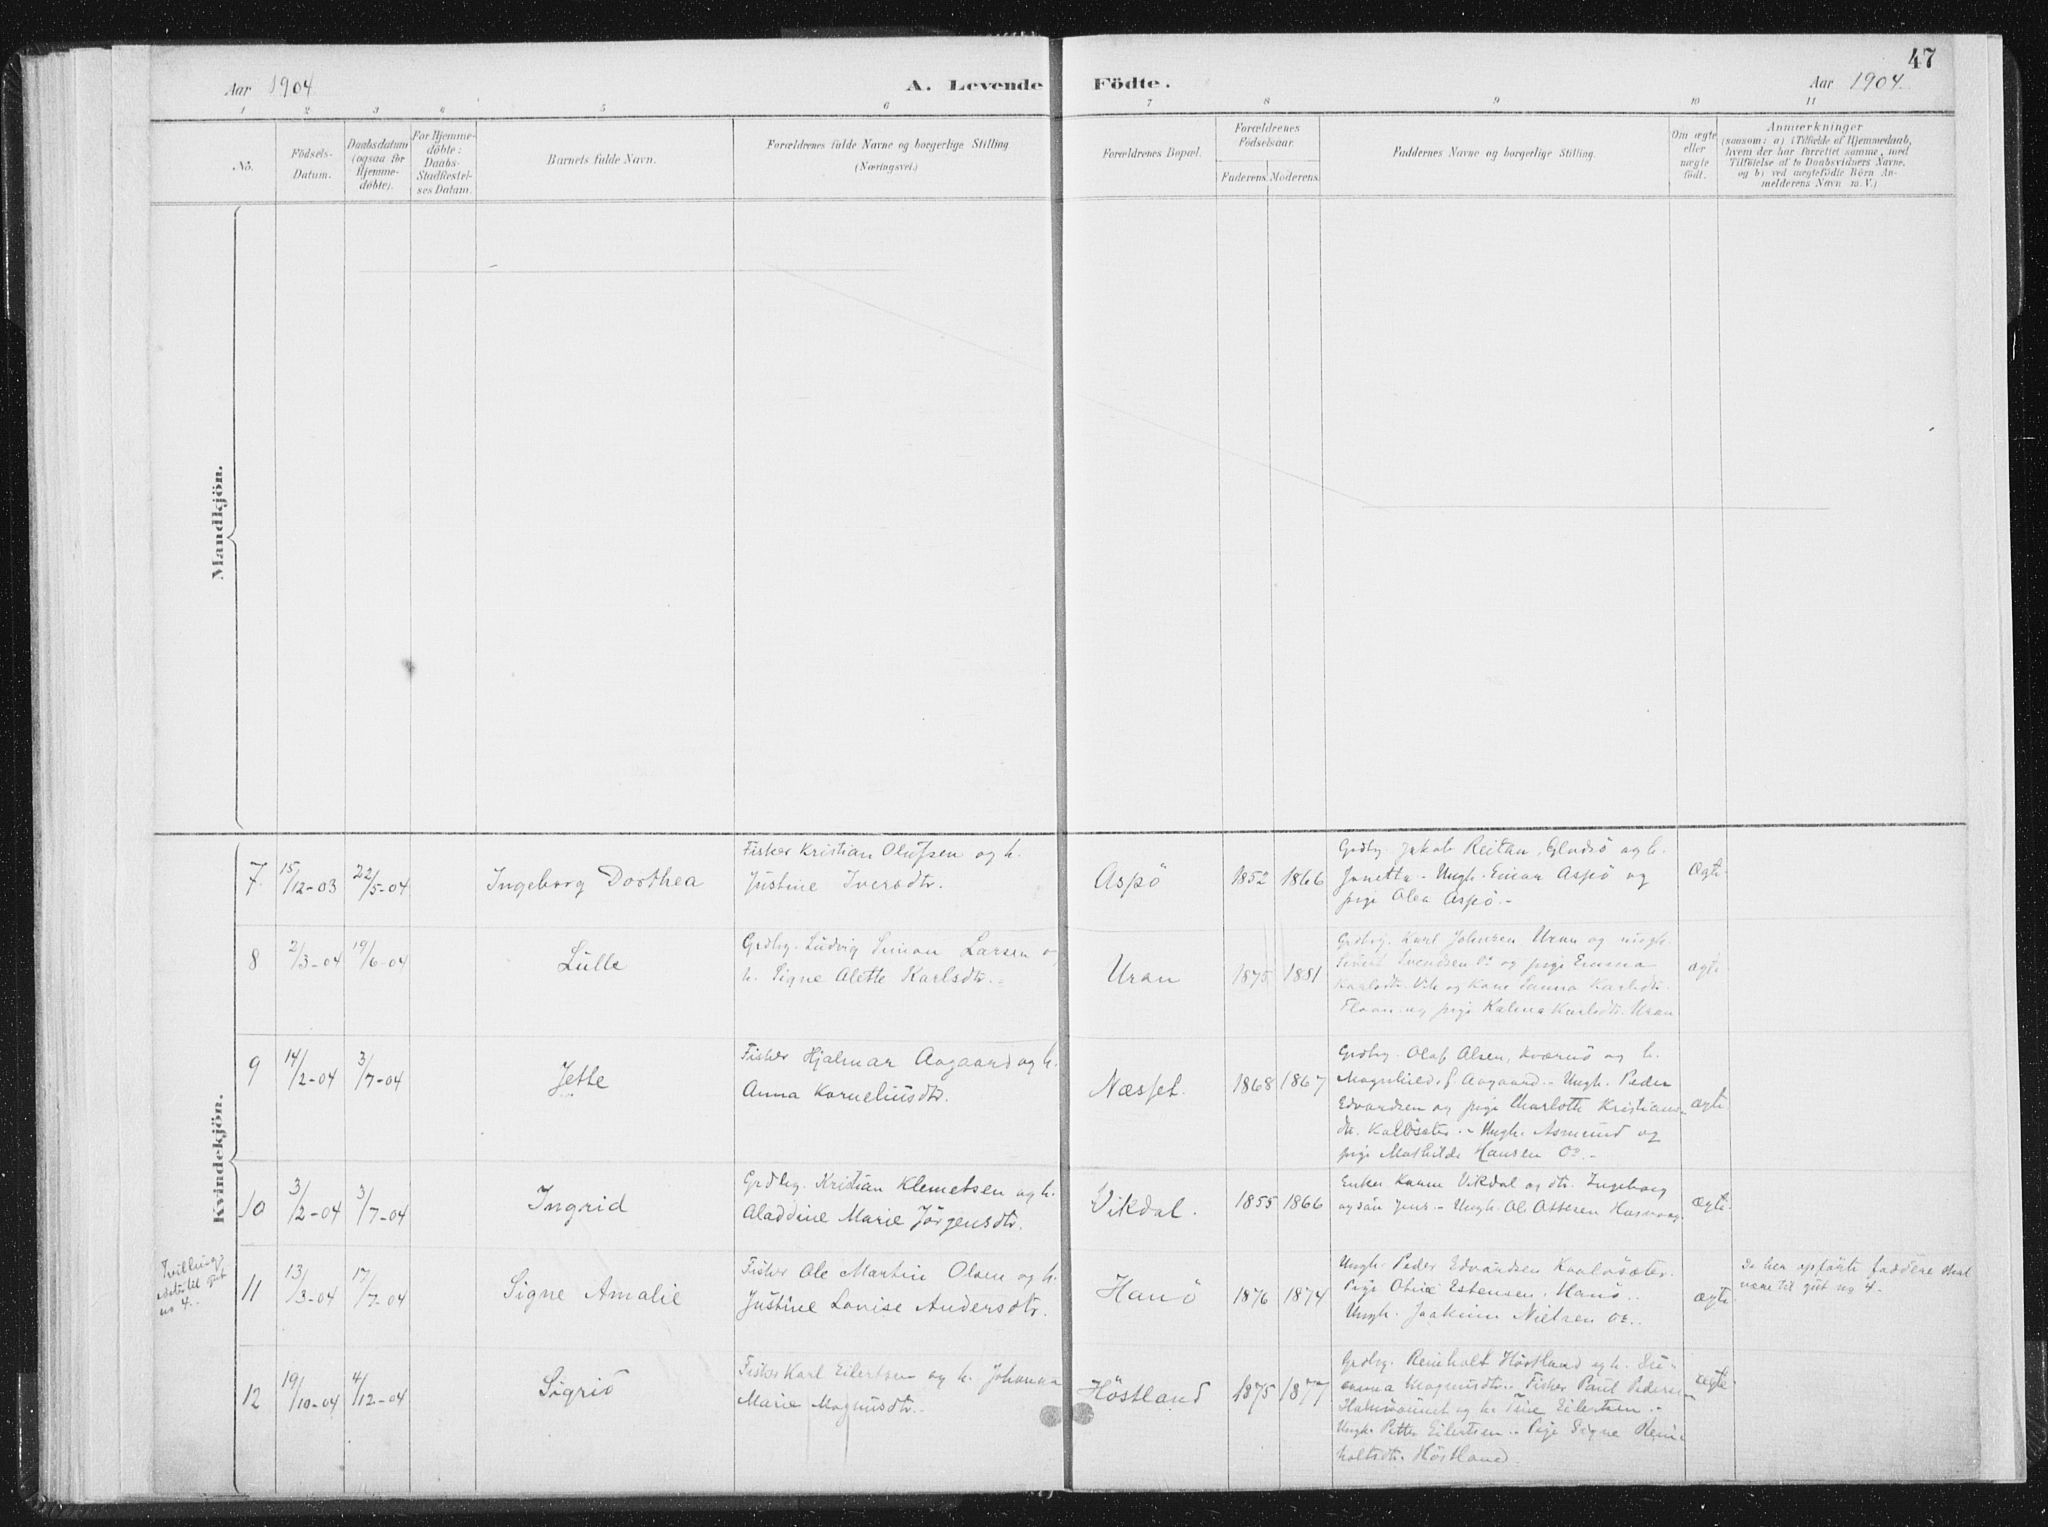 47
Aar 1904
A. Levende Födte.
Aar 1904.
1 2 3 4 5 6 7 8 9 10 11
No.
Födsels-
Datum.
Daabsdatum
(ogsaa for
Hjemme-
döbte).
For Hjemme-
döbte:
Daabs-
Stadfæstel-
ses Datum.
Barnets fulde Navn.
Forældrenes fulde Navne og borgerlige Stilling
(Næringsvei.)
Forældrenes Bopæl.
Forældrenes
Födselsaar.
Faderens. Moderens.
Faddernes Navne og borgerlige Stilling.
Om ægte
eller
uægte
födt.
Anmærkninger
(saasom: a) i Tilfælde af Hjemmedaab,
hvem der har forrettet samme, med
Tilföielse af to Daabsvidners Navne,
og b) ved uægtefödte Börn An-
melderens Navn m. V.)
Mandkjön.
Kvindekjön.
7 15/12-03 22/5-04 Ingeborg Dorthea
Fisker Kristian Olufsen og h.
Justine Iversdtr.
Aspö 1852 1866
Grdbr. Jakob Reitan, og h.
Janetta - Ungk. Einar Aspö og
pige Olea Aspö.-
Ægte
8 2/3-04 19/6-04 Lülle
Grdbr. Ludvig Simon Larsen o
h. Signe Alette Karlsdtr.-
Uran 1875 1881
Grdbr. Karl Johnsen Uran og ungk.
Svendsen Do og pige Emma
Karlsdtr. Vik og Kone Sanna Karlsdtr.
og pige Kalma Karlsdtr. Uran
ægte
9 14/2-04 3/7-04 Jette
Fisker Hjalmar Aagaard og h.
Anna Korneliusdtr.
Næsset. 1868 1867
Grdbr. Olaf Olsen, Kværnö og h.
Magnhild f. Aagaard.- Ungk. Peder
Edvardsen og pige Charlotte Kristians-
dtr. - Ungk. Asmund og
pige Mathilde Hansen Do.-
ægte
10 3/2-04 3/7-04 Ingrid
Grdbr. Kristian Klemetsen og h.
Aladdine Marie Jörgensdtr.
Vikdal. 1855 1866
Enke Vikdal og dtr. Ingeborg
og sön Jens - Ungk. Ol. Ottesen
ægte
Tvillings
til gut
no 4.
11 13/3-04 17/7-04 Signe Amalie
Fisker Ole Martin Olsen og h.
Justine Lovise Andersdtr.
Hanö 1876 1874
Ungk. Peder Edvardsen
Pige Otine Estensen, Hanö.
Ungk. Joakim Nielsen Do.
ægte
De her opförte faddere skal
være til gut no 4.
12 19/10-04 4/12-04 Sigrid
Fisker Karl Eilertsen og h. Johanna
Marie Magnusdtr.
Höstland 1875 1877
Grdbr. Reinholt Höstland og h. Su-
sanna Magnusdtr. Fisker Paul Pedersen
og h. Eilertsen.-
Ungk. Petter Eilertsen.- Pige Signe Rein-
holtsdtr. Höstland.
ægte